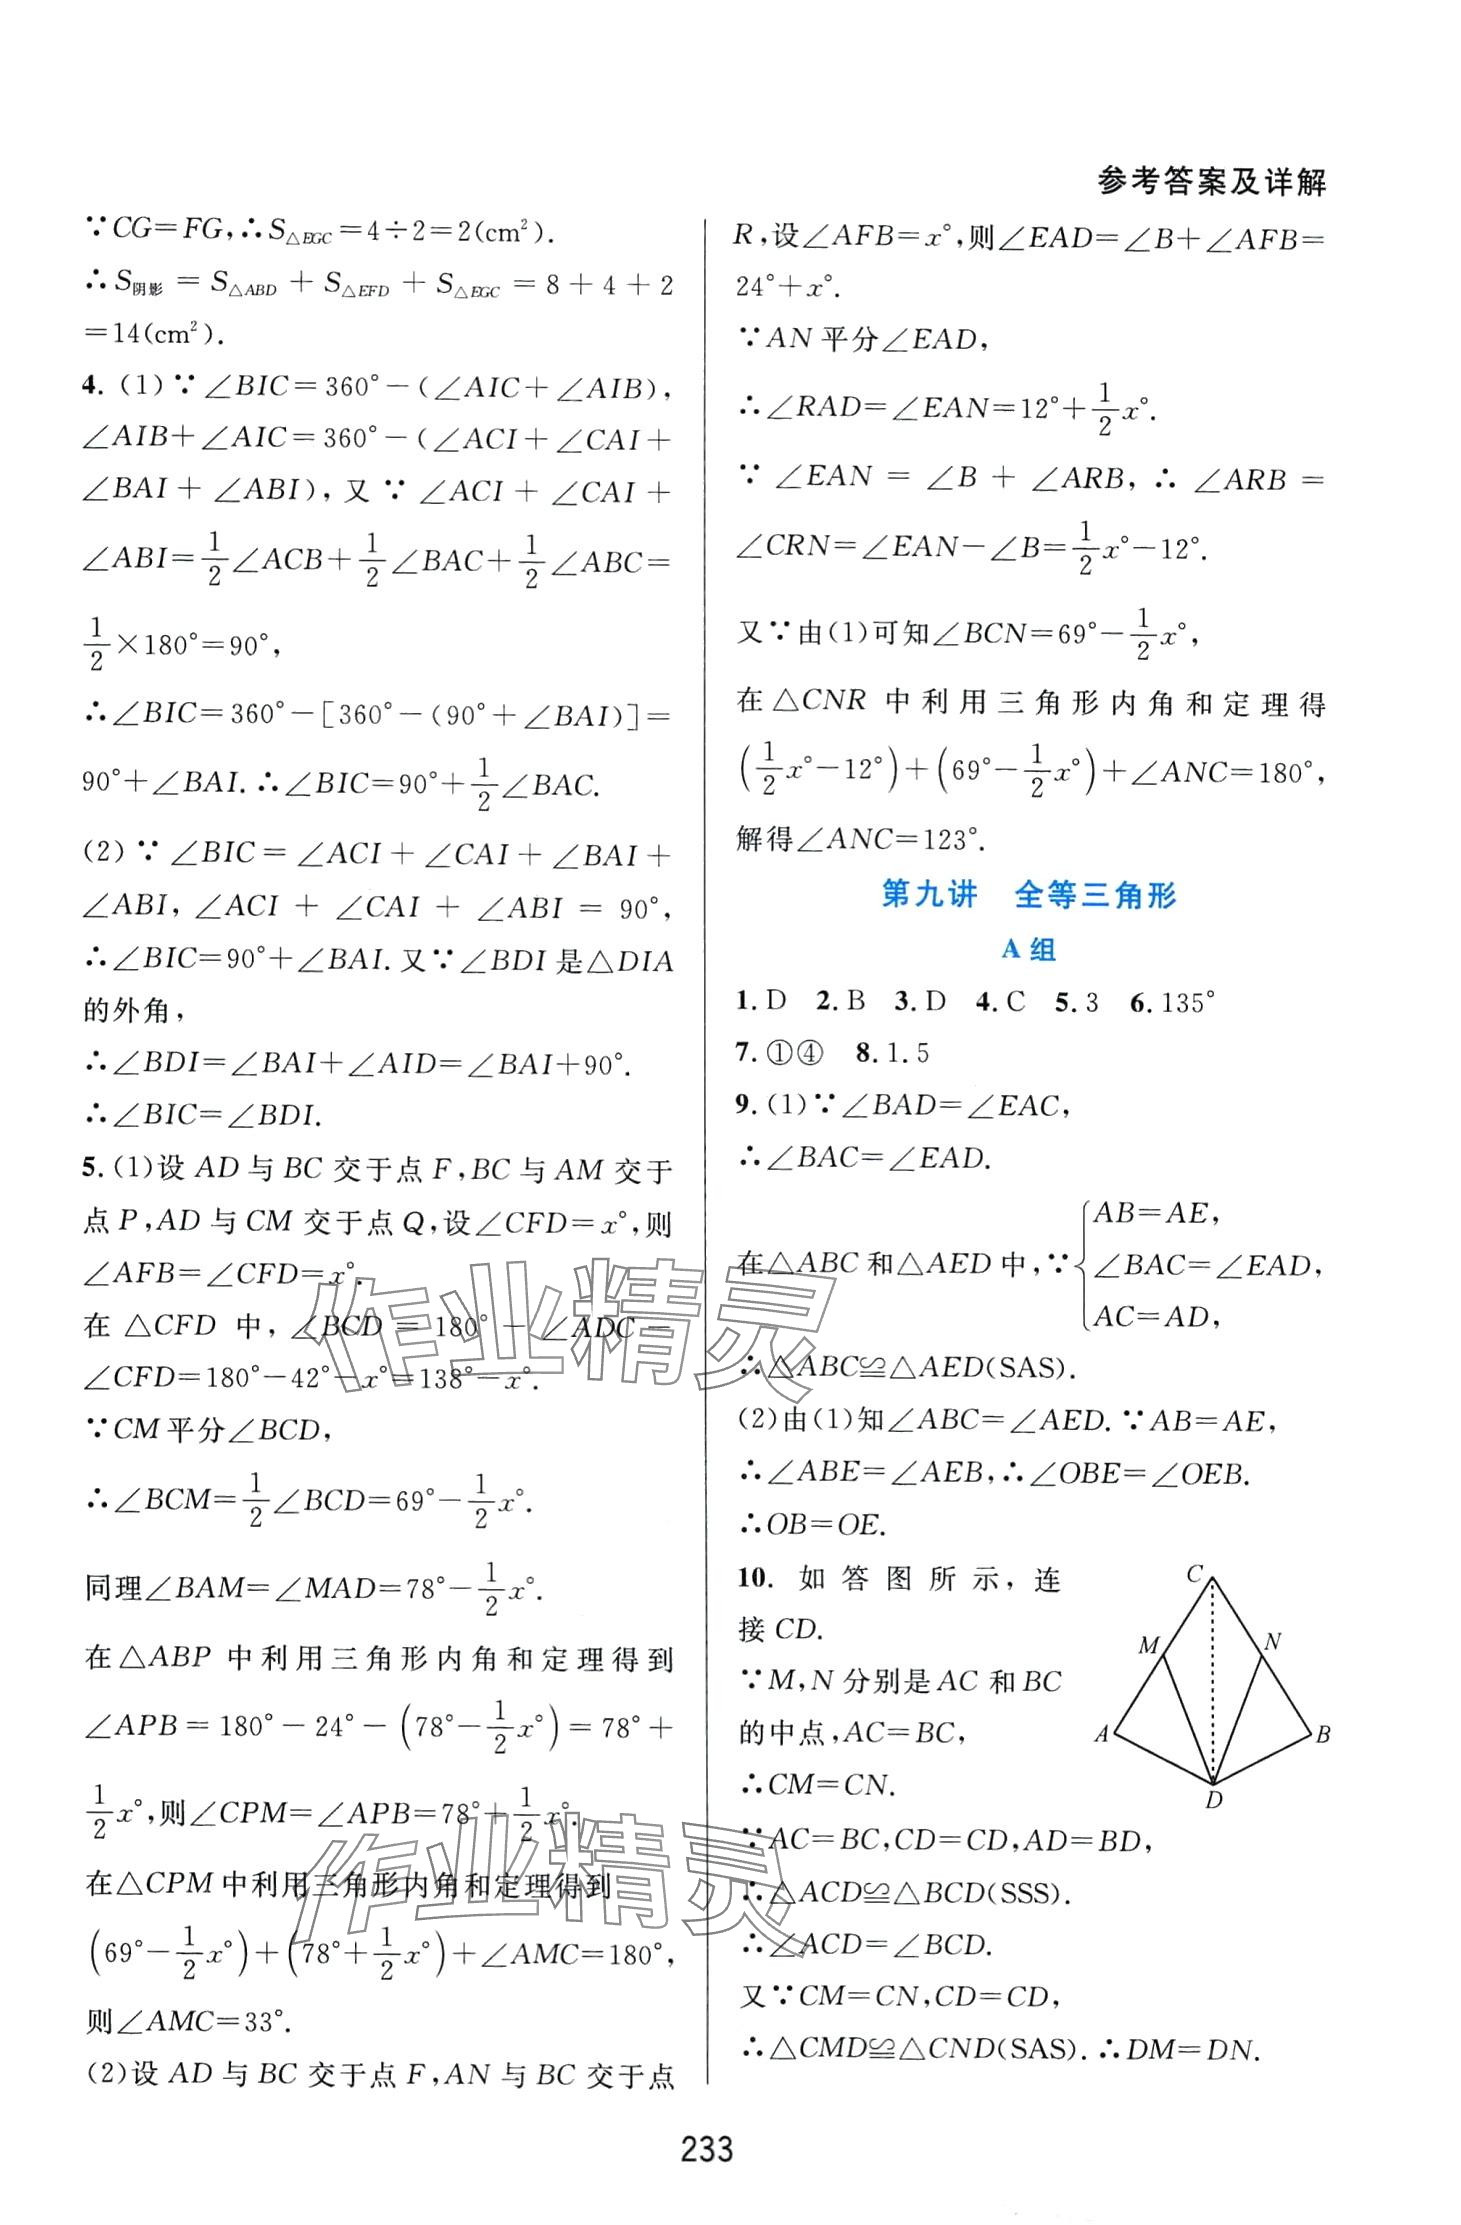 参考答案及详解
∵CG=FG,∴S△EGC=4÷2=2(cm²).
∴S阴影 = S△ABD + S△EFD + S△EGC = 8 + 4 + 2
=14(cm²).
4. (1)∵∠BIC=360°-(∠AIC+∠AIB),
∠AIB+∠AIC=360°-(∠ACI+∠CAI+
∠BAI+∠ABI),又∵∠ACI+∠CAI+
∠ABI=1/2∠ACB+1/2∠BAC+1/2∠ABC=
1/2×180°=90°,
∴∠BIC=360°-[360°-(90°+∠BAI)]=
90°+∠BAI.∴∠BIC=90°+1/2∠BAC.
(2)∵∠BIC=∠ACI+∠CAI+∠BAI+
∠ABI,∠ACI+∠CAI+∠ABI=90°,
∴∠BIC=90°+∠BAI.又∵∠BDI是△DIA
的外角,
∴∠BDI=∠BAI+∠AID=∠BAI+90°.
∴∠BIC=∠BDI.
5.(1)设AD与BC交于点F,BC与AM交于
点P,AD与CM交于点Q,设∠CFD=x°,则
∠AFB=∠CFD=x°.
在△CFD中,∠BCD=180°-∠ADC-
∠CFD=180°-42°-x°=138°-x°.
∵CM平分∠BCD,
∴∠BCM=1/2∠BCD=69°-1/2x°.
同理∠BAM=∠MAD=78°-1/2x°.
在△ABP中利用三角形内角和定理得到
∠APB=180°-24°-(78°-1/2x°)=78°+
1/2x°,则∠CPM=∠APB=78°+1/2x°.
在△CPM中利用三角形内角和定理得到
(69°-1/2x°)+(78°+1/2x°)+∠AMC=180°,
则∠AMC=33°.
(2)设AD与BC交于点F,AN与BC交于点
R,设∠AFB=x°,则∠EAD=∠B+∠AFB=
24°+x°.
∵AN平分∠EAD,
∴∠RAD=∠EAN=12°+1/2x°.
∵∠EAN=∠B+∠ARB,∴∠ARB=
∠CRN=∠EAN-∠B=1/2x°-12°.
又∵由(1)可知∠BCN=69°-1/2x°,
在△CNR中利用三角形内角和定理得
(1/2x°-12°)+(69°-1/2x°)+∠ANC=180°,
解得∠ANC=123°.
第九讲 全等三角形
A组
1.D 2.B 3.D 4.C 5.3 6.135°
7.①④ 8.1.5
9.(1)∵∠BAD=∠EAC,
∴∠BAC=∠EAD.
AB=AE,
在△ABC和△AED中,∵{∠BAC=∠EAD,
AC=AD,
∴△ABC≌△AED(SAS).
(2)由(1)知∠ABC=∠AED.∵AB=AE,
∴∠ABE=∠AEB,∴∠OBE=∠OEB.
∴OB=OE.
10. 如答图所示,连
接CD.
∵M,N分别是AC和BC
的中点,AC=BC,
∴CM=CN.
C
M
N
A
B
D
∵AC=BC,CD=CD,AD=BD,
∴△ACD≌△BCD(SSS).
∴∠ACD=∠BCD.
又∵CM=CN,CD=CD,
∴△CMD≌△CND(SAS).∴DM=DN.
作业精灵
作业精灵
233